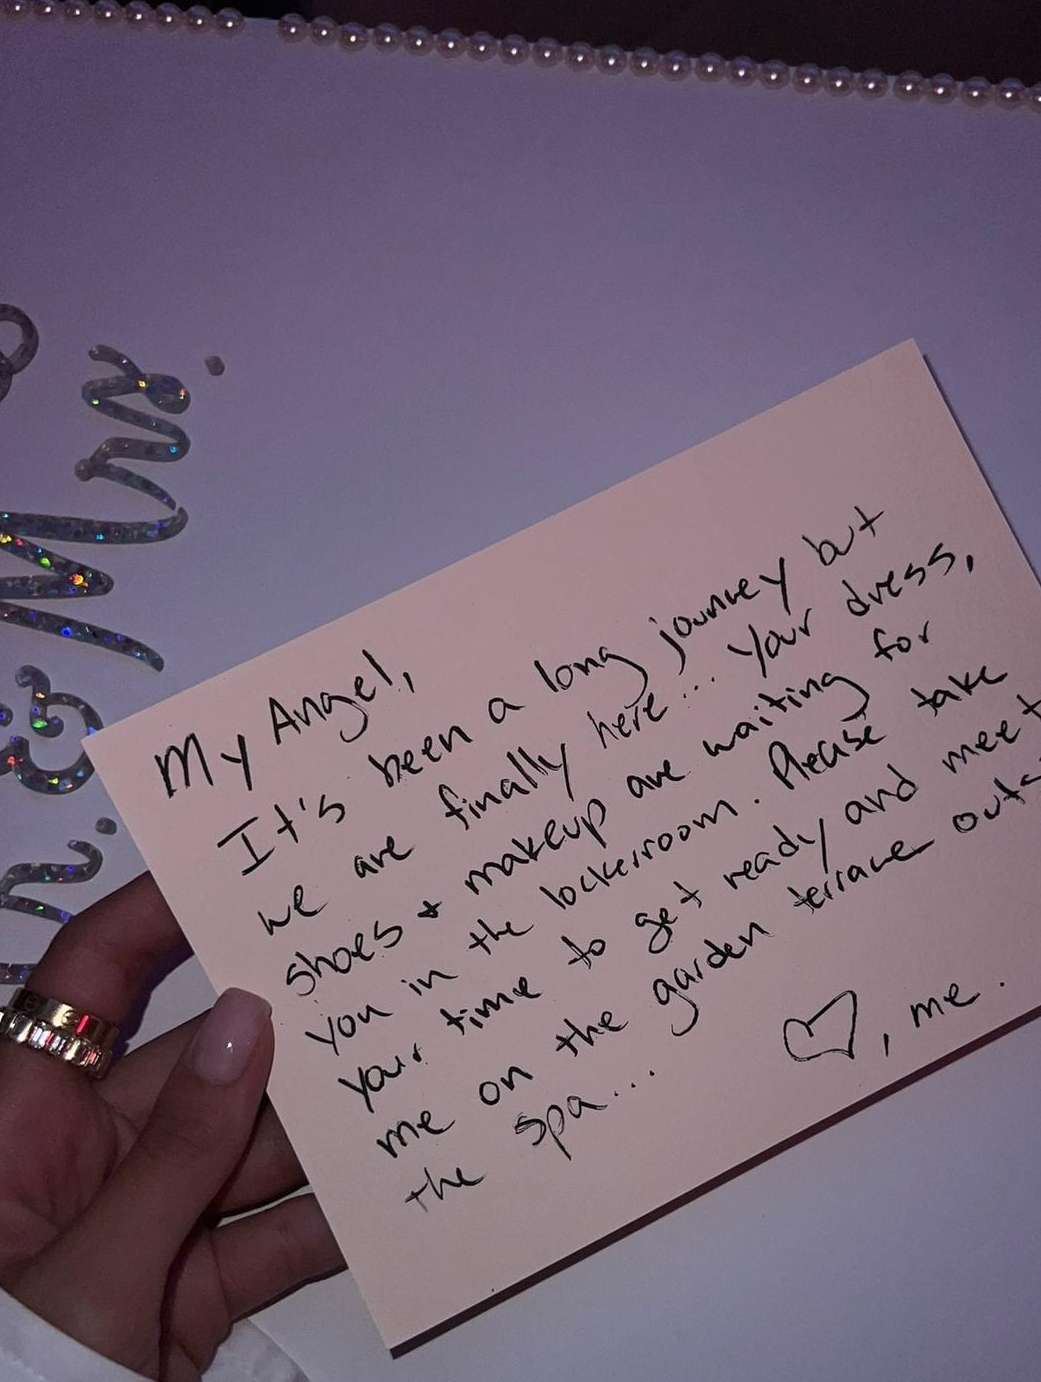 & Mrs.
My Angel,
It's been a long journey but
we are finally here... Your dress,
shoes + makeup are waiting for
you in the lockerroom. Please take
your time to get ready and meet
me on the garden terrace
the spa...
♡, me.